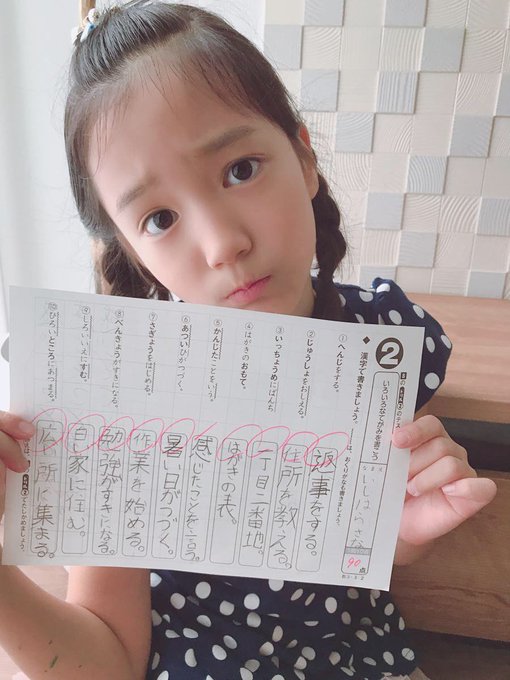 2
いろいろなてがみを書こう
いしはらさな
90点
漢字で書きましょう。
は、おくりがなも書きましょう。
① へんじをする。
返事をする。
② じゅうしょをおしえる。
住所を教える。
③ いっちょうめにばんち
一丁目二番地。
④ はがきのおもて。
はがきの表。
⑤ かんじたことをいう。
感じたことを言う。
⑥ あついひがつづく。
暑い日がつづく。
⑦ さぎょうをはじめる。
作業を始める。
⑧ べんきょうがすきになる。
勉強がすきになる。
⑨ しろいいえにすむ。
家に住む。
⑩ ひろいところにあつまる。
広い所に集まる。